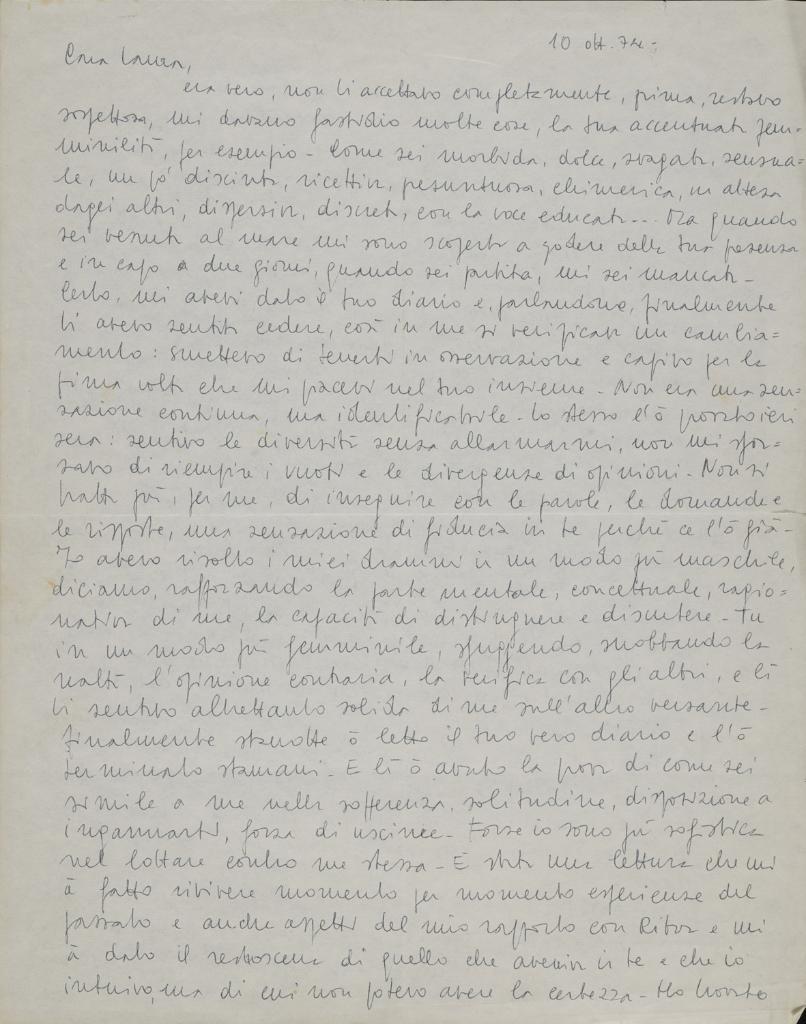 10 ott. 74 -
Cara Laura,
era vero, non ti accettavo completamente, prima, restavo
sospettosa, mi davano fastidio molte cose, la tua accentuata fem-
minilità, per esempio - Come sei morbida, dolce, svagata, sensua=
le, un po' discinta, ricettiva, presuntuosa, chimerica, in attesa
dagli altri, dispersiva, discreta, con la voce educata... Ma quando
sei venuta al mare mi sono scoperta a godere della tua presenza
e in capo a due giorni, quando sei partita, mi sei mancata -
Certo, mi avevi dato il tuo diario e, parlandone, finalmente
ti avevo sentita cedere, così in me si verificava un cambia=
mento: smettevo di tenerti in osservazione e capivo per la
prima volta che mi piacevi nel tuo insieme - Non era una sen=
sazione continua, ma identificabile - Lo stesso l'ò provato ieri
sera: sentivo le diversità senza allarmarmi, non mi sfor=
zavo di riempire i vuoti e le divergenze di opinioni - Non si
tratta più, per me, di inseguire con le parole, le domande e
le risposte, una sensazione di fiducia in te perché ce l'ò già -
Io avevo risolto i miei drammi in un modo più maschile,
diciamo, rafforzando la parte mentale, concettuale, razio=
nativa di me, la capacità di distinguere e discutere - Tu
in un modo più femminile, sfuggendo, snobbando la
realtà, l'opinione contraria, la verifica con gli altri, e lì
ti sentivo altrettanto solida di me sull'altro versante -
Finalmente stanotte ò letto il tuo vero diario e l'ò
terminato stamani - E lì ò avuto la prova di come sei
simile a me nella sofferenza, solitudine, disposizione a
ingannarti, forza di uscirne - Forse io sono più sofistica
nel lottare contro me stessa - È stata una lettura che mi
à fatto rivivere momento per momento esperienze del
passato e anche aspetti del mio rapporto con Ritva e mi
à dato il retroscena di quello che avveniva in te e che io
intuivo, ma di cui non potevo avere la certezza - Ho trovato